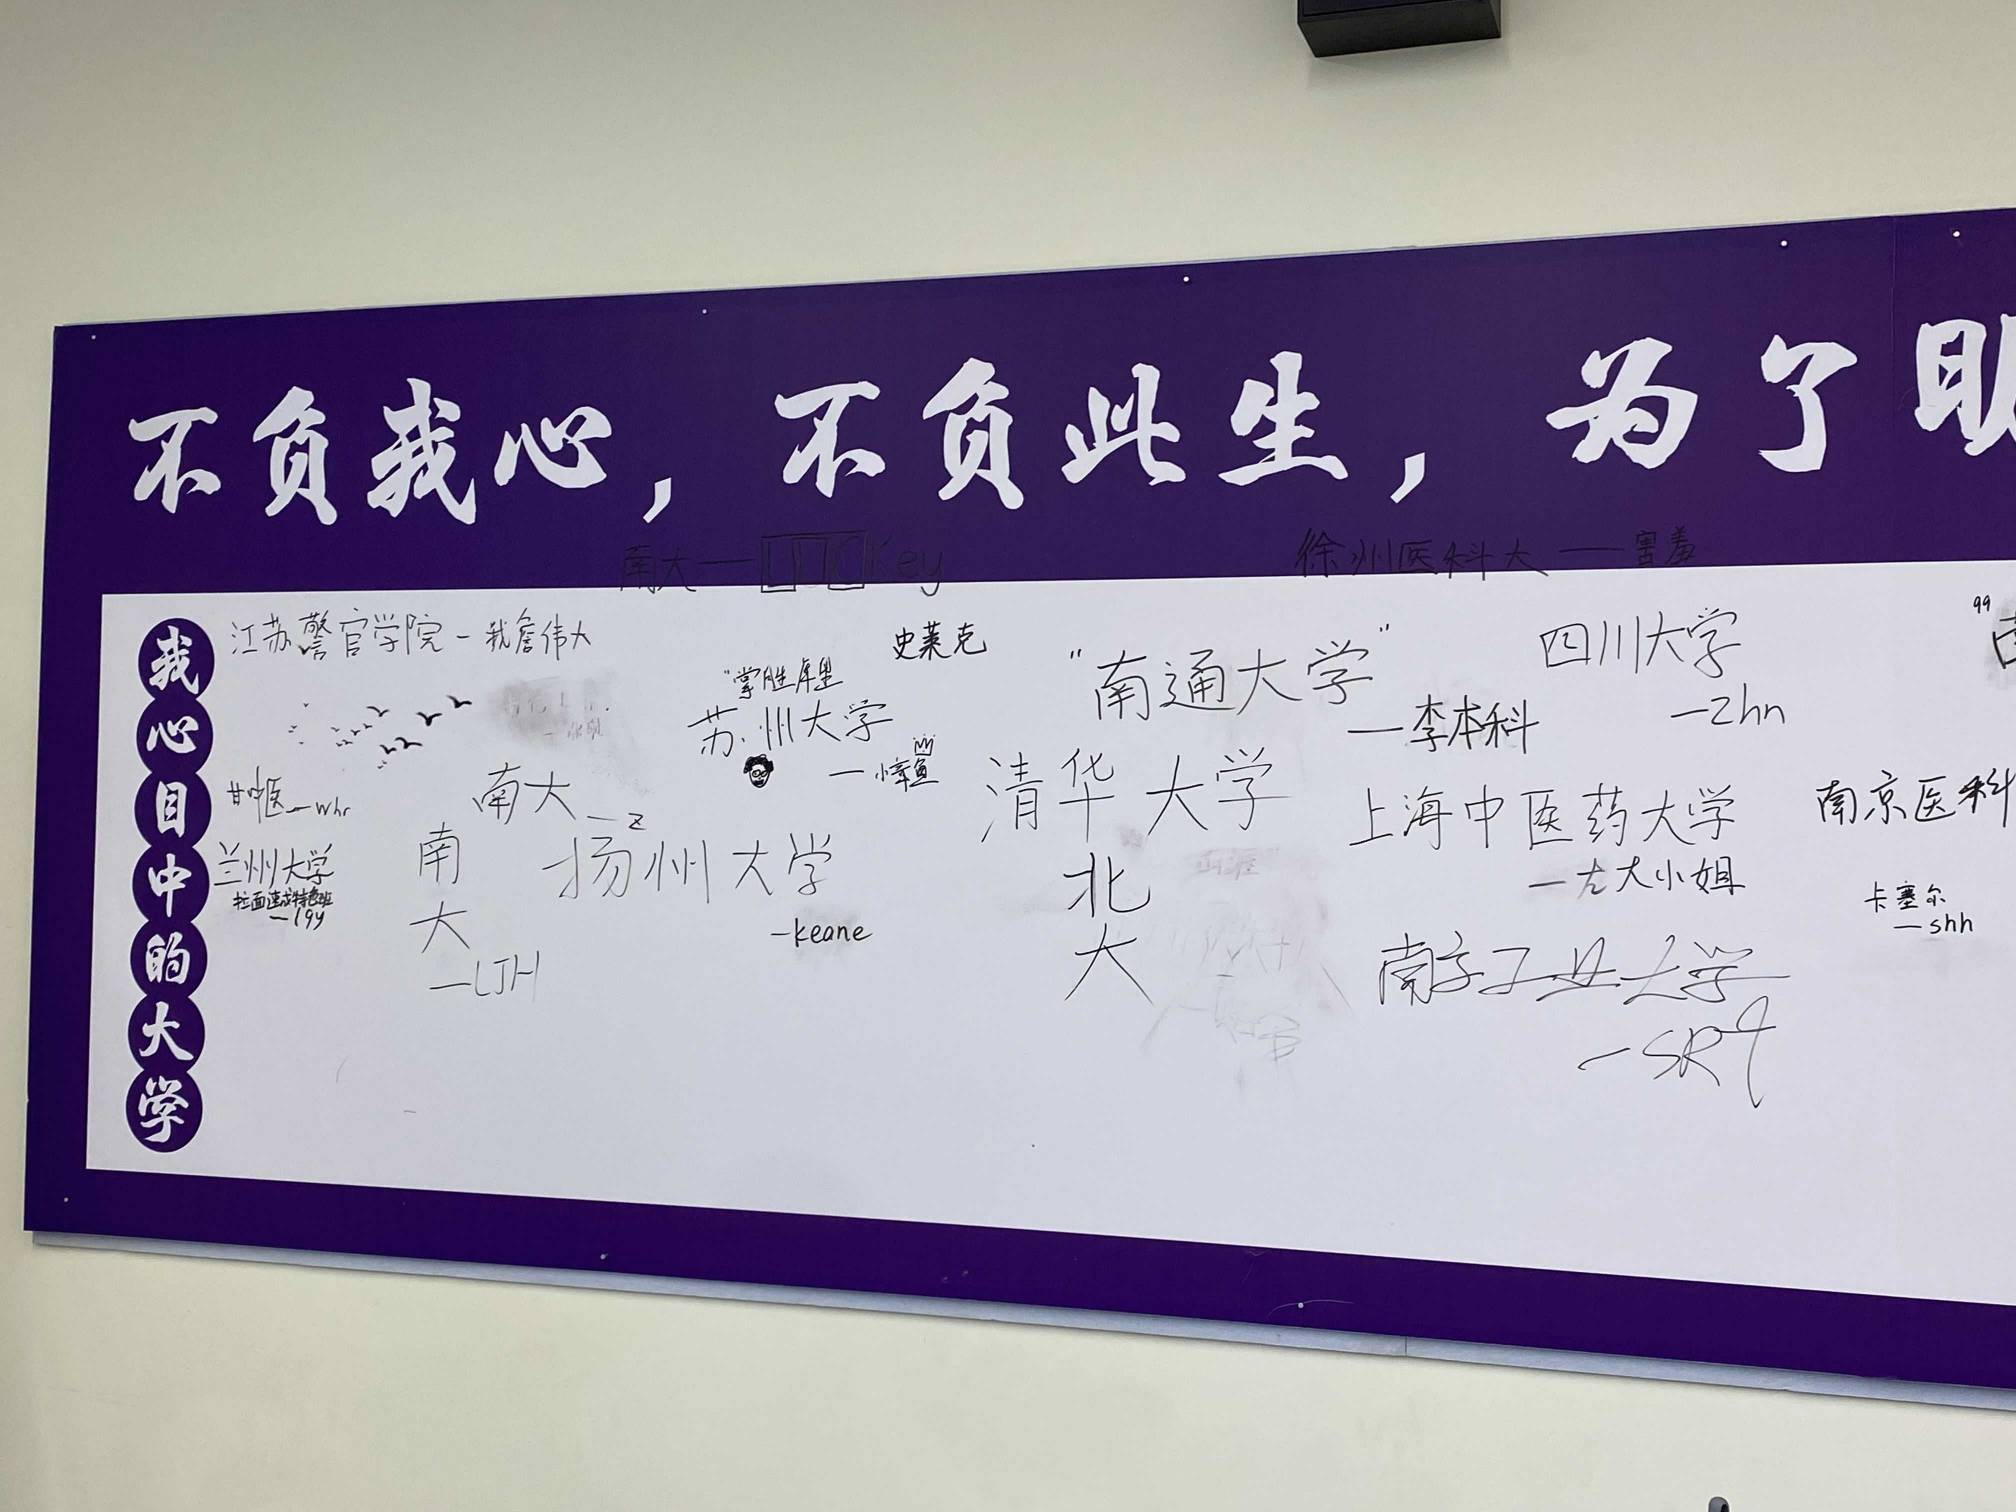 不负我心，不负此生，为了
南大—
Key
徐州医科大——害羞
我心目中的大学
江苏警官学院-我詹伟大
史莱克
苏州大学
"南通大学"
—李本科
四川大学
—Zhn
甘中医—whr
南大—z
兰州大学
拉面速成特色班
—lgy
南大
—LJH
扬州大学
-keane
清华大学
北大
上海中医药大学
大小姐
南京工业大学
南京医科
卡塞尔
—shh